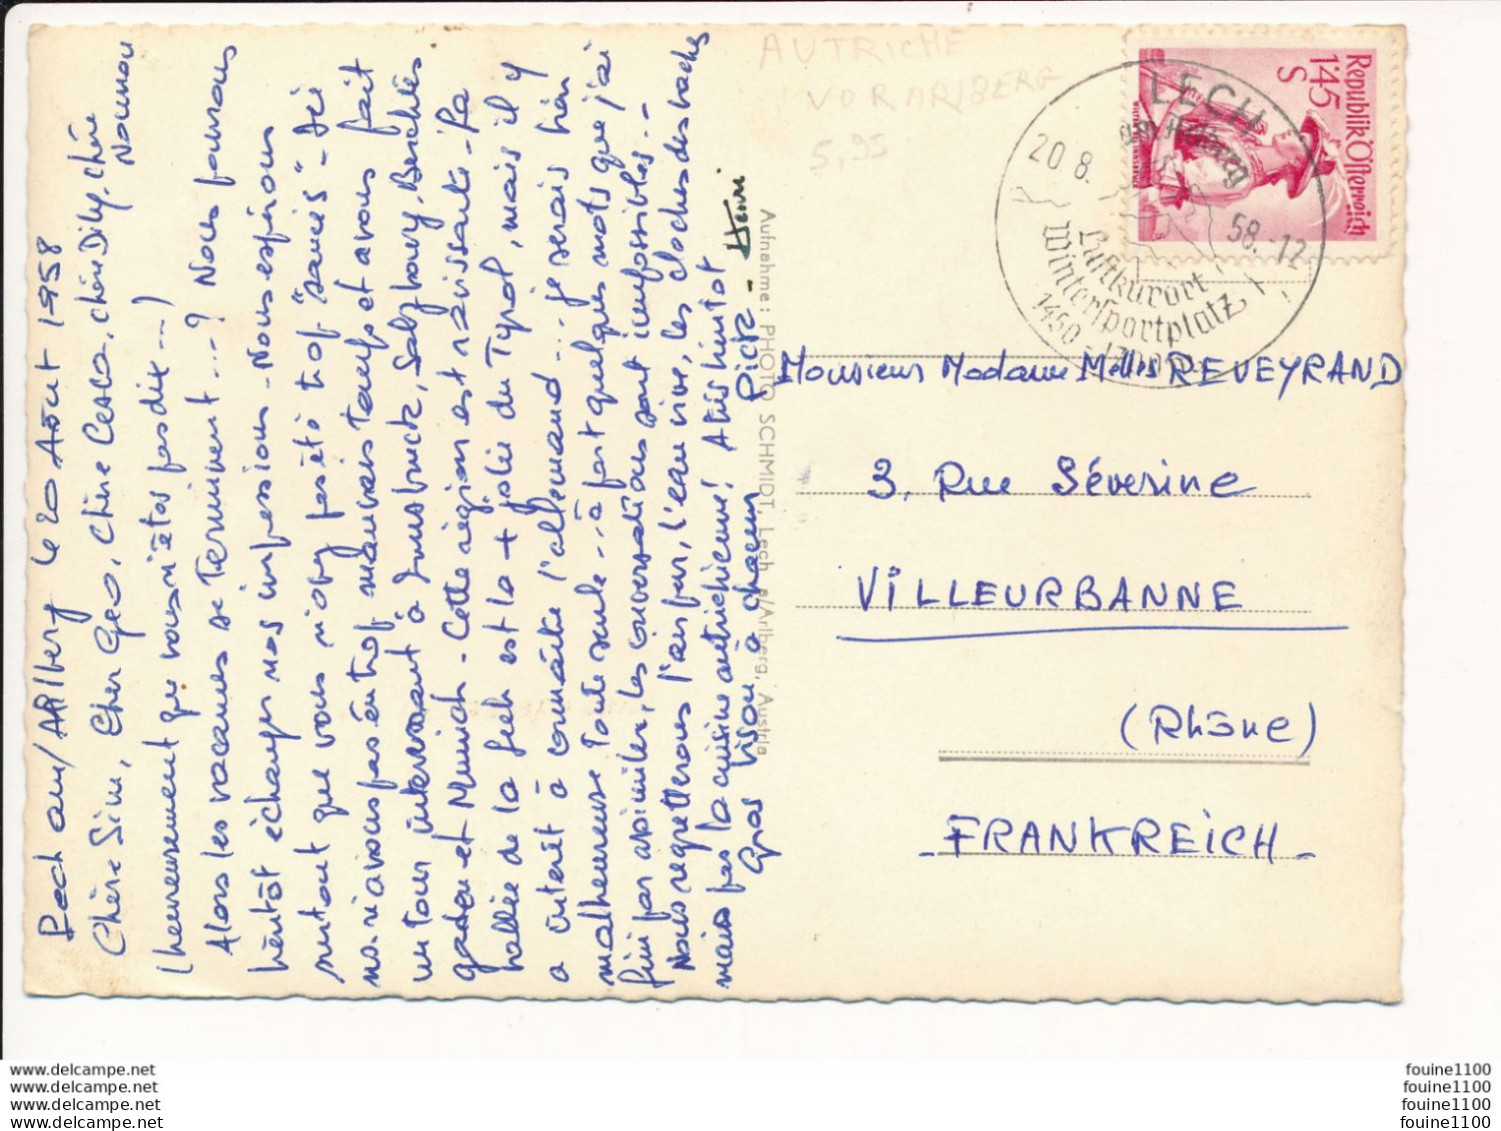 Lech am/ARlberg le 20 Août 1958
Chère Sim, Cher Géo, Chère Cesca, chère Dily, chère
Nounou
(heureusement que vous n'êtes pas dix ---)
Alors les vacances se terminent ...? Nous pourrons
bientôt échanger nos impressions - Nous espérons
surtout que vous n'avez pas été trop "saucés" - Ici
ns. n'avons pas eu trop mauvais temps et avons fait
un tour intéressant à Innsbruck, Salzbourg, Berchtes
gaden et Munich - Cette région est ravissante - La
vallée de la Lech est la + jolie du Tyrol, mais il y
a intérêt à connaître l'allemand ... je serais bien
malheureuse toute seule ... à part quelques mots que j'ai
fini par assimiler, les conversations sont impossibles. -
Nous regretterons l'air pur, l'eau vive, les cloches des vaches
mais pas la cuisine autrichienne! A très bientôt
Gros bisou à chacun Pick - Henri
AUTRICHE
VORARLBERG
5,95
Aufnahme: PHOTO SCHMIDT, Lech a/Arlberg, Austria
Republik Österreich
1'45
S
LECH
am Arlberg
20 8. 58.-12
Luftkurort
Wintersportplatz
1450-1700
Monsieur Madame Melles REVEYRAND
3, Rue Séverine
VILLEURBANNE
(Rhône)
- FRANKREICH -
www.delcampe.net
www.delcampe.net
www.delcampe.net
www.delcampe.net
fouine1100
fouine1100
fouine1100
fouine1100